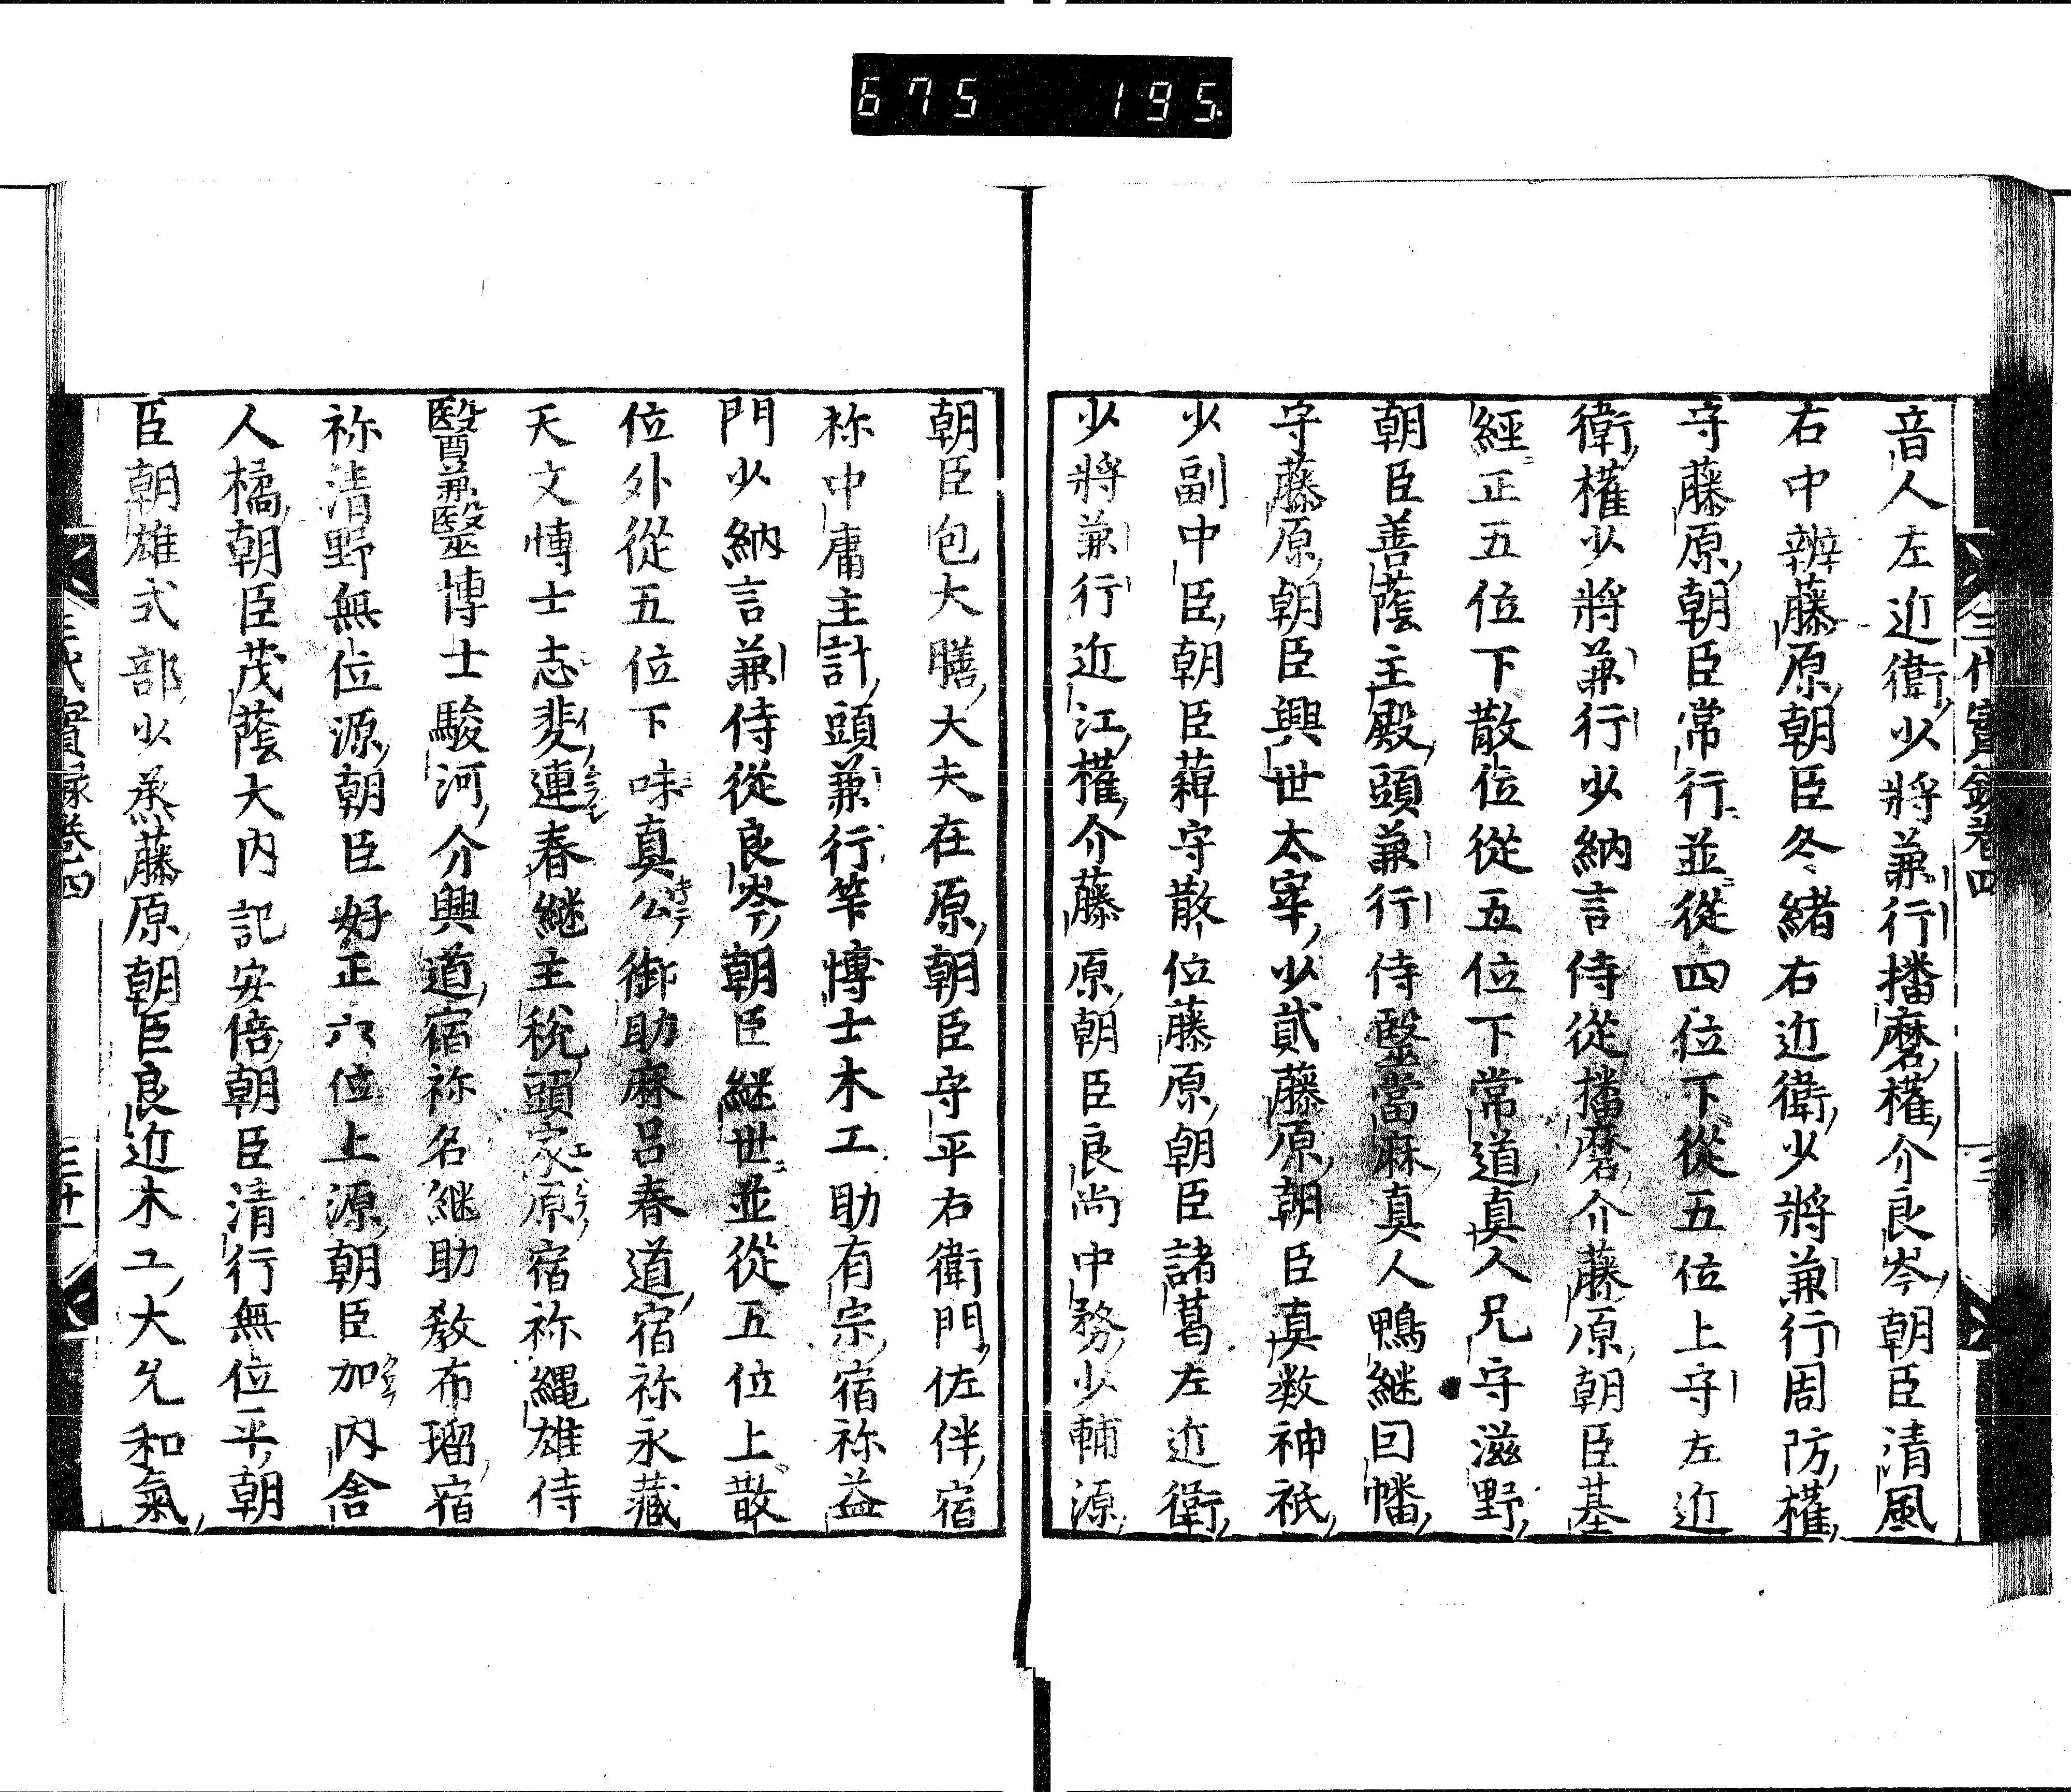 675 195
三代實録卷四
音人左近衛少將兼行播磨權介良岑朝臣清風
右中辨藤原朝臣冬緒右近衛少將兼行周防權
守藤原朝臣常行並從四位下從五位上守左近
衛權少將兼行少納言侍從播磨介藤原朝臣基
經正五位下散位從五位下常道真人兄守滋野
朝臣善蔭主殿頭兼行侍醫當麻真人鴨継因幡
守藤原朝臣興世太宰少貳藤原朝臣真数神祇
少副中臣朝臣薭守散位藤原朝臣諸葛左近衛
少將兼行近江權介藤原朝臣良尚中務少輔源
朝臣包大膳大夫在原朝臣守平右衛門佐伴宿
祢中庸主計頭兼行筭博士木工助有宗宿祢益
門少納言兼侍從良岑朝臣継世並從五位上散
位外從五位下味真公御助麻呂春道宿祢永藏
天文博士志斐連春継主税頭家原宿祢縄雄侍
醫兼醫博士駿河介興道宿祢名継助教布瑠宿
祢清野無位源朝臣好正六位上源朝臣加内舎
人橘朝臣茂蔭大内記安倍朝臣清行無位平朝
臣朝雄式部少丞藤原朝臣良近木工大允和氣
三代實録卷四
三十一